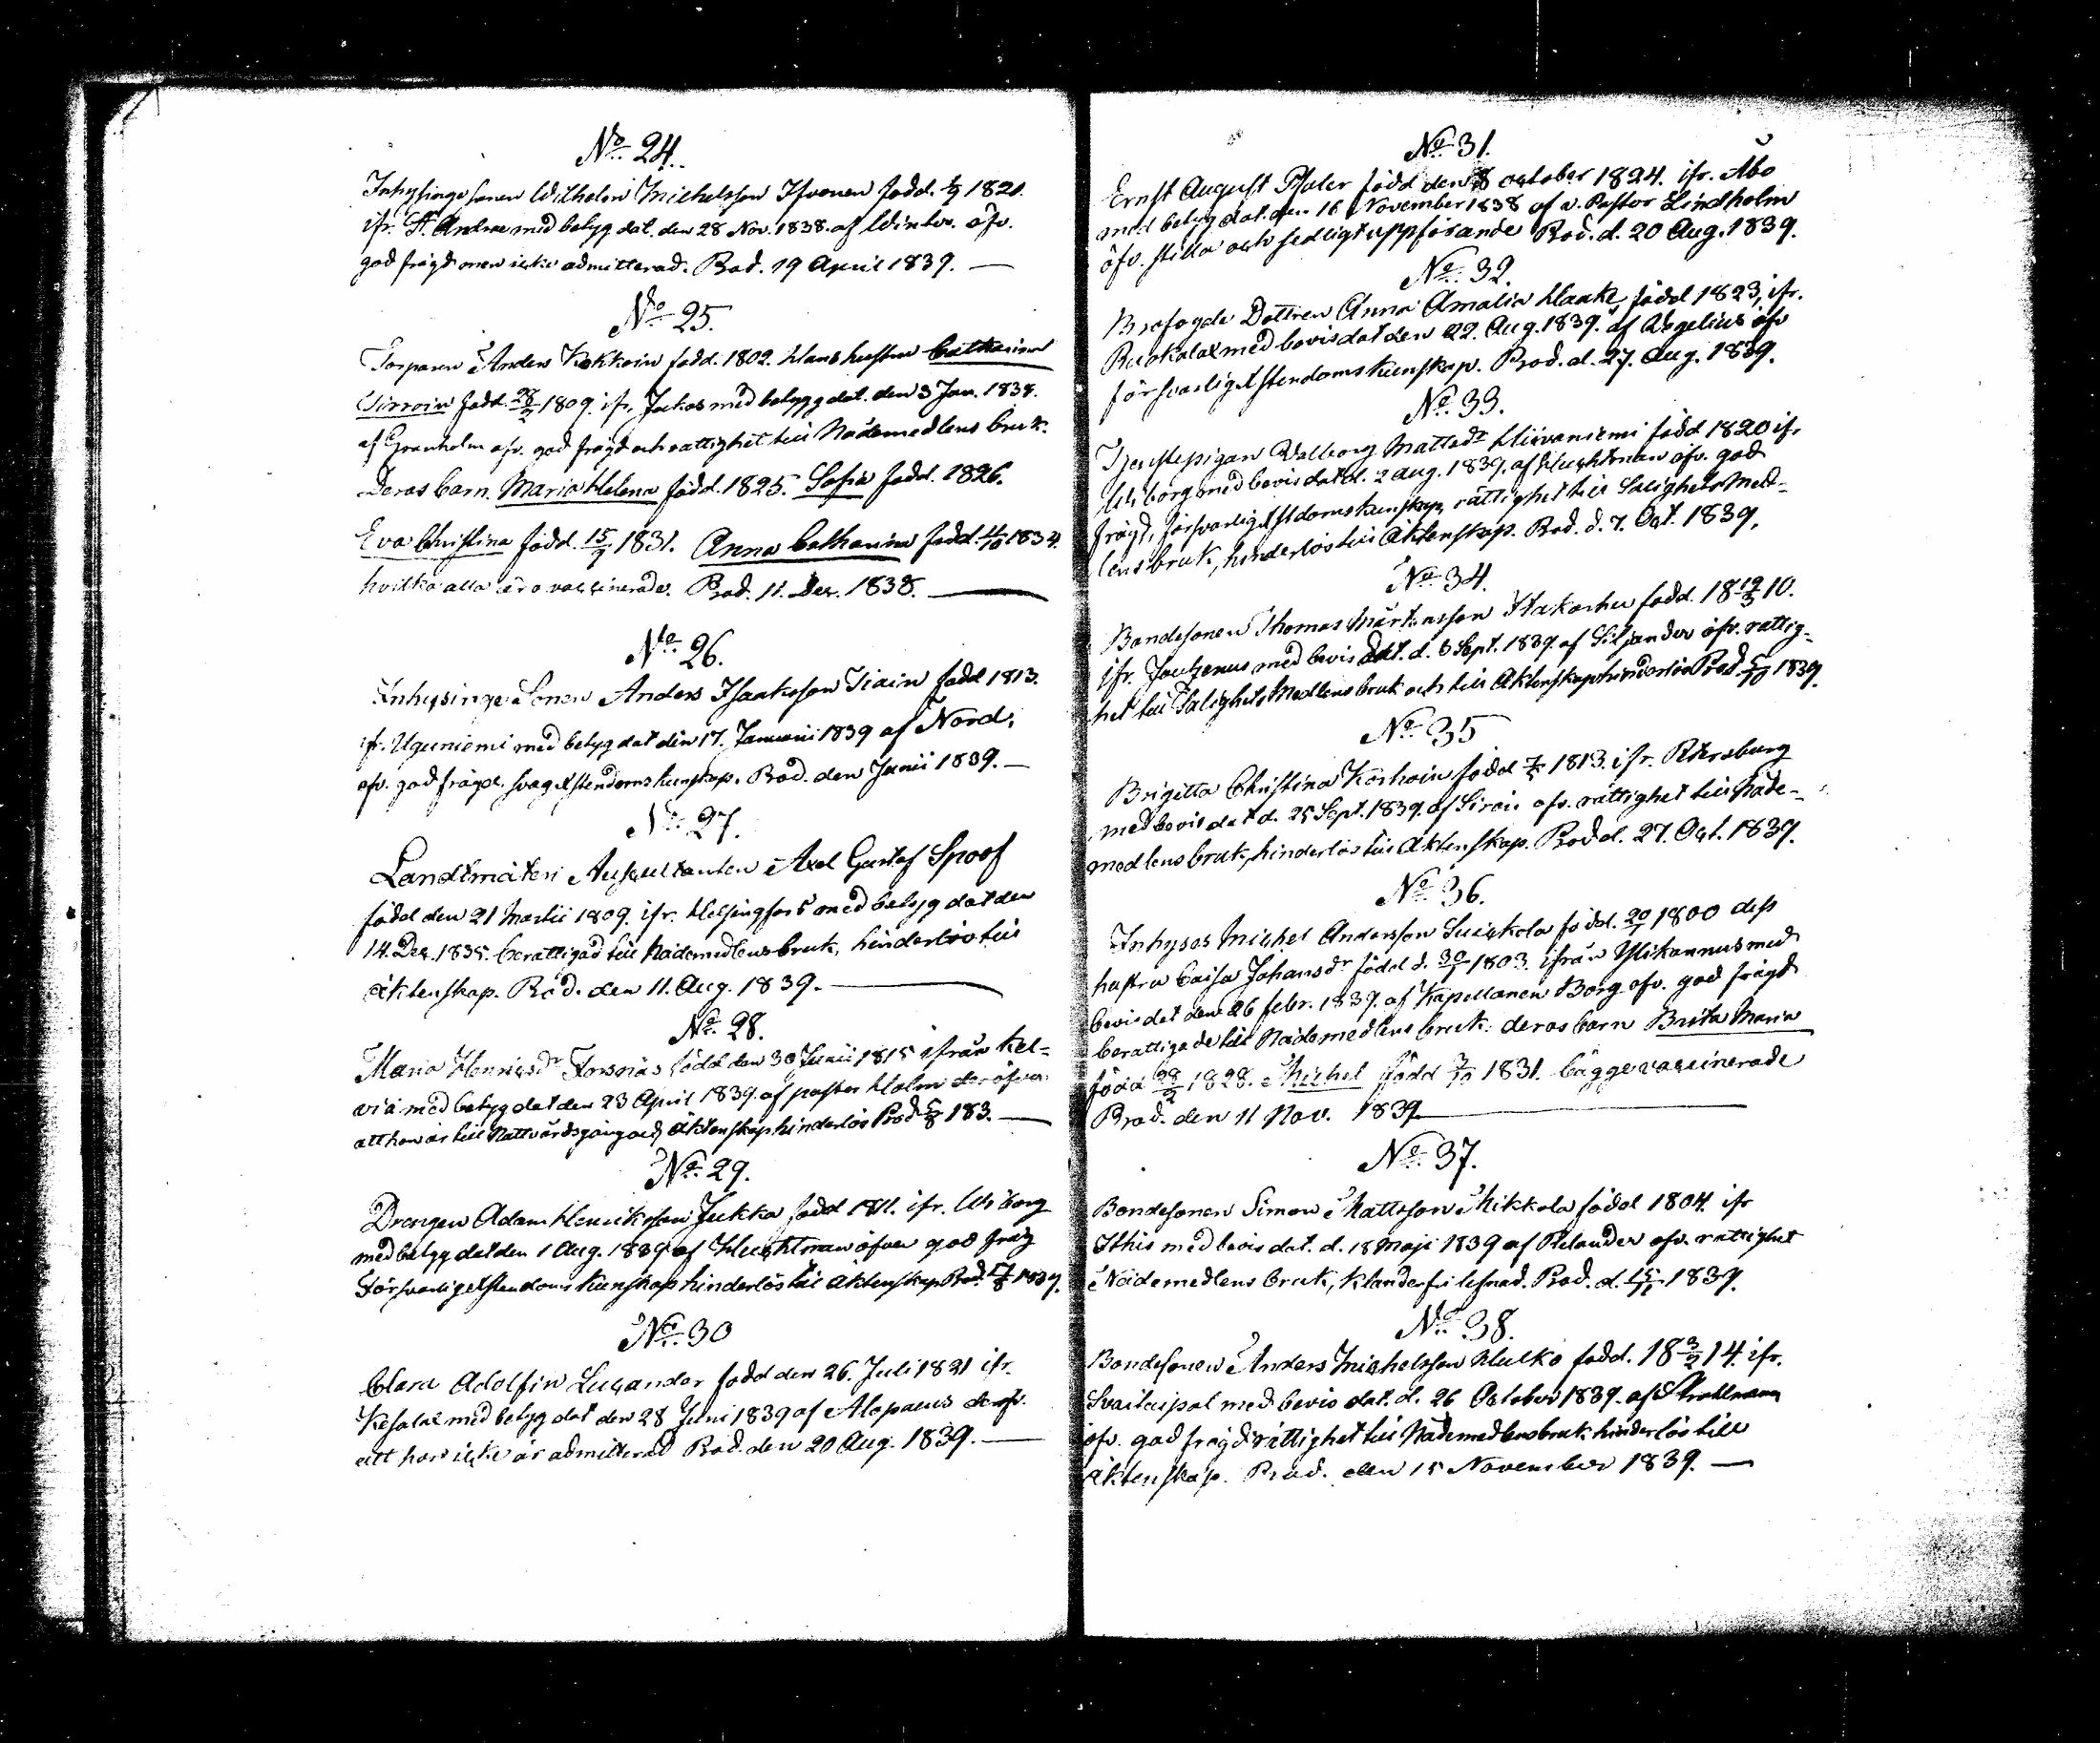 No 24.
Inhysinge sonen Wilhelm Michelsson Ifvonen född. 1/9 1821.
ifr. St. Andreæ med betyg dat. den 28 Nov. 1838. af Winter. öfv.
god frägd men icke admitterad. Prod. 19 April 1839. —
No 25.
Torparen Anders Kokkoin född. 1802. Hans hustru Catharina
Sirroin född. 28/2 1809. ifr. Jockas med betyg dat. den 3 Jan. 1838.
af Granholm ofv. god frägd och rättighet till Nådemedlens bruk.
Deras barn. Maria Helena född. 1825. Sofia född. 1826.
Eva Christina född. 15/9 1831. Anna Catharina född. 4/10 1834.
hvilka alla äro vaccinerade. Prod. 11. Dec. 1838. —
No 26.
Inhysinge Sonen Anders Isaaksson Tiain född 1813.
ifr. Uguniemi med betyg dat den 17. Januarii 1839 af Nord;
ofv. god frägd. svag Xstendoms kunskap. Prod. den Junii 1839. —
No 27.
Landtmäteri Auscultanten Axel Gustaf Spoof
född den 21 Martii 1809. ifr. Helsingfors med betyg dat den
14. Dec. 1838. berättigad till Nådemedlens bruk, hinderlös till
äktenskap. Prod. den 11. Aug. 1839. —
No 28.
Maria Henricsdr Forsnäs född den 30 Junii 1815 ifrån Kel=
viå med betyg dat den 23 April 1839. af pastor Holm deröfver
att hon är till Nattvardsgång och äktenskap hinderlös Prod. 183. —
No 29.
Drengen Adam Henriksson Jukka född 1811. ifr. Wiborg
med betyg dat den 1 Aug. 1839 af Huchtman öfver god fräg
Försvarlig Xstendoms kunskap hinderlös till äktenskap Prod. 1839.
No 30
Clara Adolfin Lucander född den 26. Juli 1821 ifr.
Kesalax med betyg dat den 28 Juni 1839 af Alopaeus derofv.
att hon icke är admitterad Prod. den 20 Aug. 1839. —
No 31.
Ernst August Psaler född den 8 october 1824. ifr. Åbo
med betyg dat. den 16 November 1838 af v. Pastor Lindholm
öfv. stilla och sedligt uppförande Prod. d. 20 Aug. 1839.
No 32.
Brofogde Dottren Anna Amalia Haake, född 1823, ifr.
Ruokolax med bevis dat den 22. Aug. 1839. af Wegelius öfv
försvarlig Xstendoms kunskap. Prod. d. 27. Aug. 1839.
No 33.
Tjenstepigan Walborg Mattsdr Hirvaniemi född 1820 ifr
Wiborg med bevis dat d. 2 aug. 1839. af Huchtman ofv. god
frägd, försvarlig Xstdoms kunskap, rättighet till Salighets Med=
lens bruk, hinderlös till Äktenskap. Prod. d. 7. Oct. 1839.
No 34.
Bondesonen Thomas Mårtensson född. 18 19/3 10.
ifr. Joutzenus med bevis dat. d. 8 Sept. 1839. af Siljander öfv. rättig=
het till Salighets Medlens bruk och till Äktenskap hinderlös Prod. 1839.
No 35
Brigitta Christina Korhoin född 1813. ifr. Petersburg
med bevis dat d. 25 Sept. 1839. af Siren ofv. rättighet till Nåde=
medlens bruk, hinderlös till Äktenskap. Prod d. 27. Oct. 1839.
No 36.
Inhyses Michel Andersson född. 20/7 1800 dess
hustru Caisa Johansdr född d. 30/1 1803. ifrån Ylikannus med
bevis dat den 26 febr. 1839. af Kapellanen Borg ofv. god frägd
berättigade till Nådemedlens bruk: deras barn Brita Maria
född 28/2 1828. Michel född 3/10 1831. bägge vaccinerade
Prod. den 11 Nov. 1839. —
No 37.
Bondesonen Simon Mattsson Mikkola född 1804. ifr
Ithis med bevis dat. d. 18 Maji 1839 af Relander ofv. rättighet
Nådemedlens bruk, klanderfri lefnad. Prod. d. 15/11 1839.
No 38.
Bondesonen Anders Michelsson Hulko född. 18 3/2 14. ifr.
Savitaipal med bevis dat. d. 26 October 1839. af Strahlmann
öfv. god frägd rättighet till Nådemedlens bruk hinderlös till
Äktenskap. Prod. den 15 November 1839. —